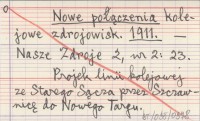 Nowe połączenia kole-
jowe zdrojowisk. 1911. —
Nasze Zdroje 2, nr 2: 23.
Projek linii kolejowej
ze Starego Sącza przez Szczaw-
nicę do Nowego Targu.